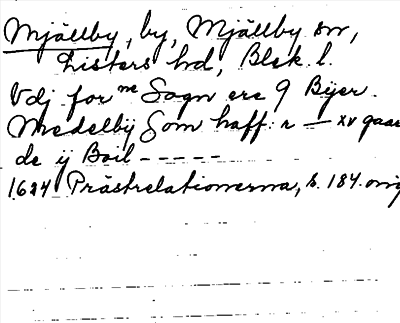 Mjällby, by, Mjällby sn,
Listers hd, Blek. l.
Vdj forne Sogn ere 9 Bijer.
Medelbij Som haff. r — xv gaar
de ij Boil - - - - -
1624 Prästrelationerna, s. 184. orig